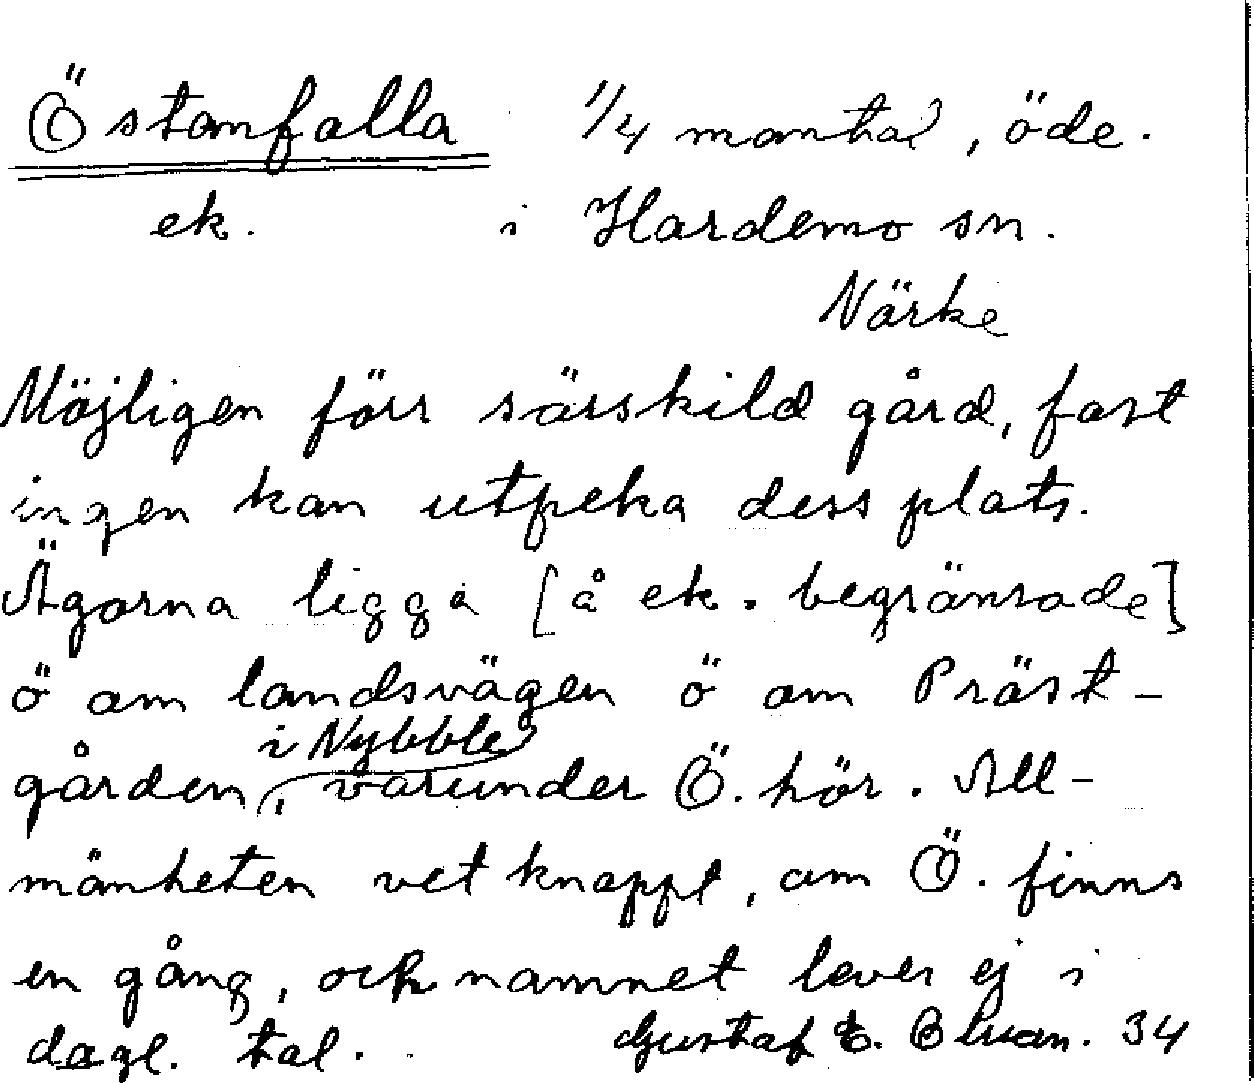 Östanfalla 1/4 mantal, öde.
ek. i Hardemo sn.
Närke
Möjligen förr särskild gård, fast
ingen kan utpeka dess plats.
Ägorna ligga [å ek. begränsade]
ö om landsvägen ö om Präst-
i Nybble
gården, varunder Ö. hör. All-
mänheten vet knappt, om Ö. finns
en gång, och namnet lever ej i
dagl. tal. Gustaf E. 34